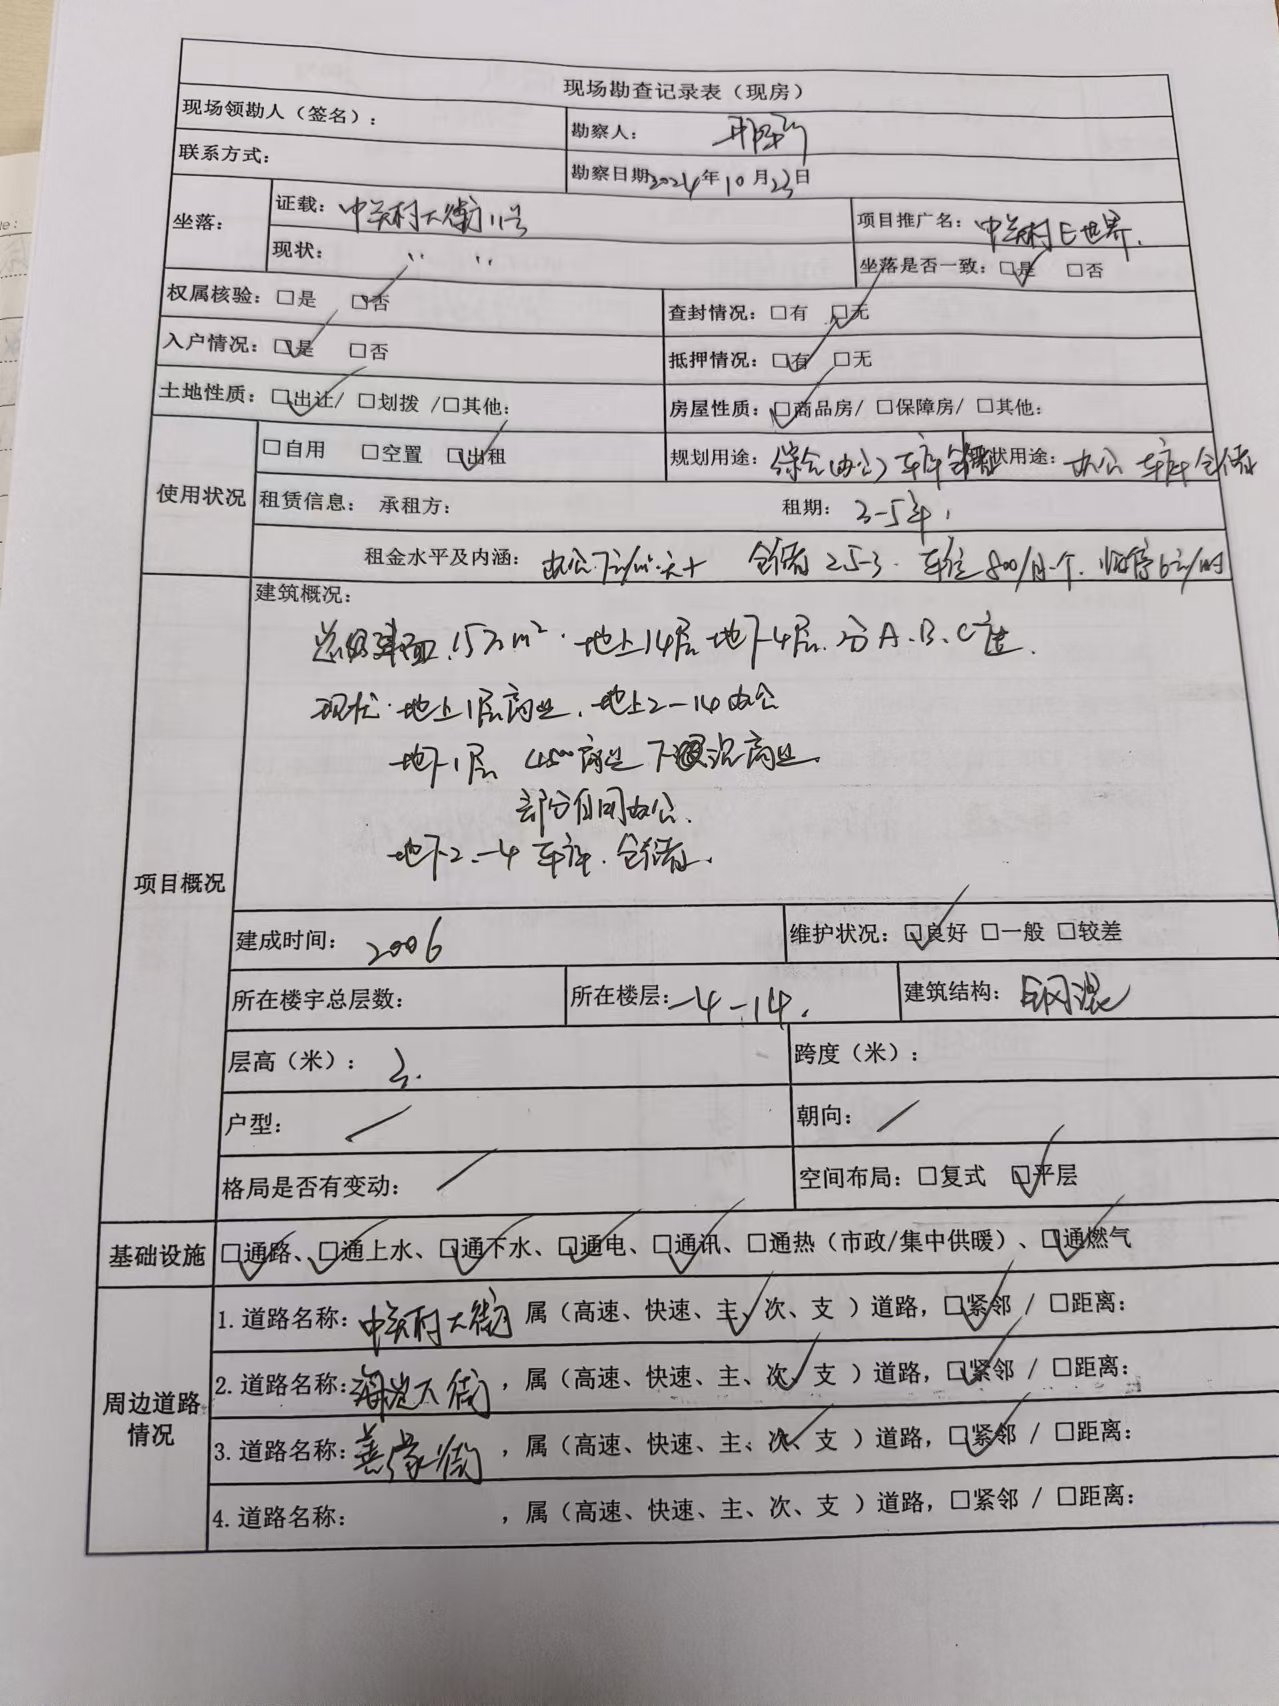 现场勘查记录表（现房）
现场领勘人（签名）：
勘察人：
联系方式：
勘察日期2024年10月23日
坐落：
证载：中关村大街11号
项目推广名：中关村E世界.
现状： 〃 〃
坐落是否一致：☑是 □否
权属核验：□是 ☑否
查封情况：□有 ☑无
入户情况：☑是 □否
抵押情况：☑有 □无
土地性质：☑出让/ □划拨 /□其他：
房屋性质：☑商品房/ □保障房/ □其他：
使用状况
□自用 □空置 ☑出租
规划用途：综合(办公) 车库 仓储
现状用途：办公 车库 仓储
租赁信息： 承租方：
租期： 3-5年,
租金水平及内涵：办公.7元/m²·天+ 仓储 2.5-3. 车位 800/月·个. 临停6元/时
项目概况
建筑概况：
建面.15万m². 地上14层 地下4层. 分A.B.C座.
现状·地上1层商业. 地上2-14办公
地下1层 4500商业 下沉商业.
部分自用办公.
地下2-4 车库. 仓储.
建成时间： 2006
维护状况：☑良好 □一般 □较差
所在楼宇总层数：
所在楼层：-4-14.
建筑结构：钢混
层高（米）： 3.
跨度（米）：
户型： /
朝向： /
格局是否有变动： /
空间布局：□复式 ☑平层
基础设施
☑通路、☑通上水、☑通下水、☑通电、☑通讯、□通热（市政/集中供暖）、☑通燃气
周边道路情况
1.道路名称：中关村大街 属（高速、快速、主✓、次、支 ）道路，☑紧邻 / □距离：
2.道路名称：海淀大街 ，属（高速、快速、主、次✓、支 ）道路，☑紧邻 / □距离：
3.道路名称：善缘街 ，属（高速、快速、主、次✓、支 ）道路，☑紧邻 / □距离：
4.道路名称： ，属（高速、快速、主、次、支 ）道路，□紧邻 / □距离：